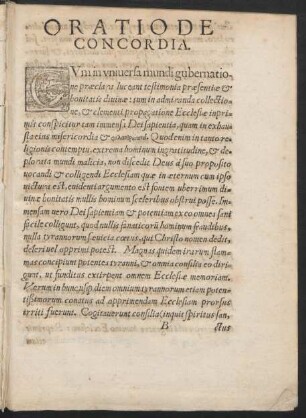 ORATIO DE
CONCORDIA.
CVm in vniuersa mundi gubernatio
ne præclara luceant testimonia præsentiæ &
bonitatis diuinæ: tum in admiranda collectio
ne, & clementi propagatione Ecclesiæ inpri-
mis conspicitur cum immensa Dei sapientia, quam in exhau
sta eius misericordia & Quod enim in tanto re
ligionis contemptu, extrema hominum ingratitudine, & de
plorata mundi malicia, non discedit Deus à suo proposito
vocandi & colligendi Ecclesiam quæ in æternum cum ipso
victura est, euidenti argumento est fontem uberrimum diui
næ bonitatis nullis hominum sceleribus obstrui posse. Im
mensam uero Dei sapientiam & potentiam ex eo omnes sani
facile colligunt, quod nullis fanaticorū hominum fraudibus,
nulla tyrannorum sæuicia cœtus, qui Christo nomen dedit,
deleri uel opprimi potest. Magnas quidem irarum flam-
mas concipiunt potentes tyranni, & omnia consilia eo diri-
gunt, ut funditus extirpent omnem Ecclesiæ memoriam.
Verùm in hunc usque diem omnium tyrannorum etiam poten-
tissimorum conatus ad opprimendam Ecclesiam prorsus
irriti fuerunt. Cogitauerunt consilia (inquit spiritus san-
B ctus